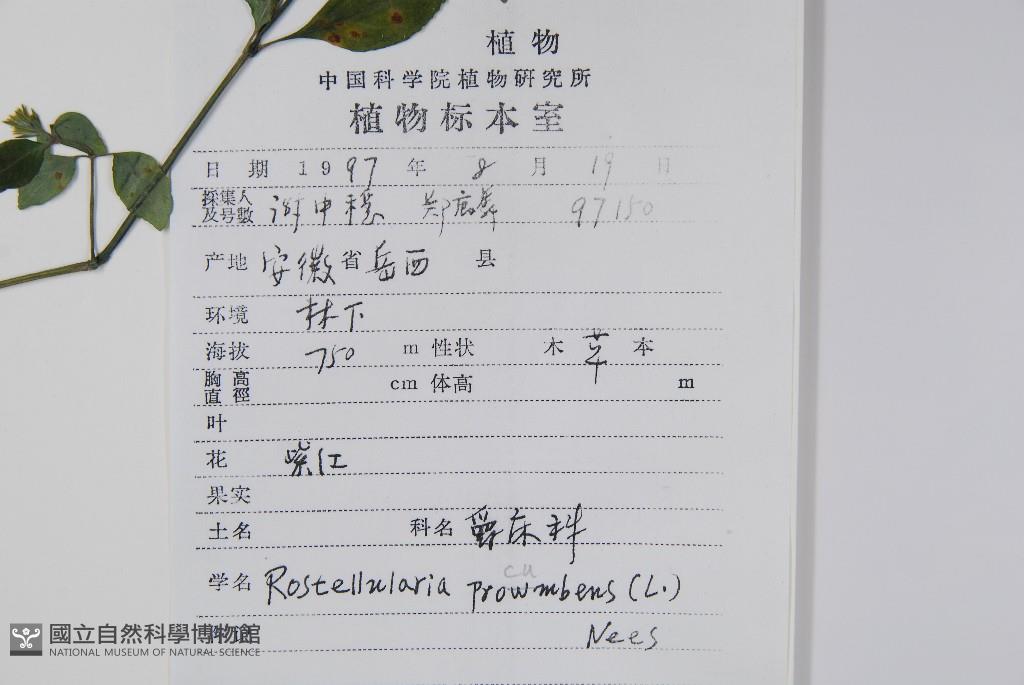 植物
中国科学院植物研究所
植物标本室
日期 1997年 8月 19日
採集人及号數 鄭 97150
产地 安徽省岳西 县
环境 林下
海拔 750 m 性状 木 草 本
胸高直徑 cm 体高 m
叶
花 紫红
果实
土名 科名 爵床科
学名 Rostellularia procumbens (L.)
Nees
國立自然科學博物館
NATIONAL MUSEUM OF NATURAL SCIENCE